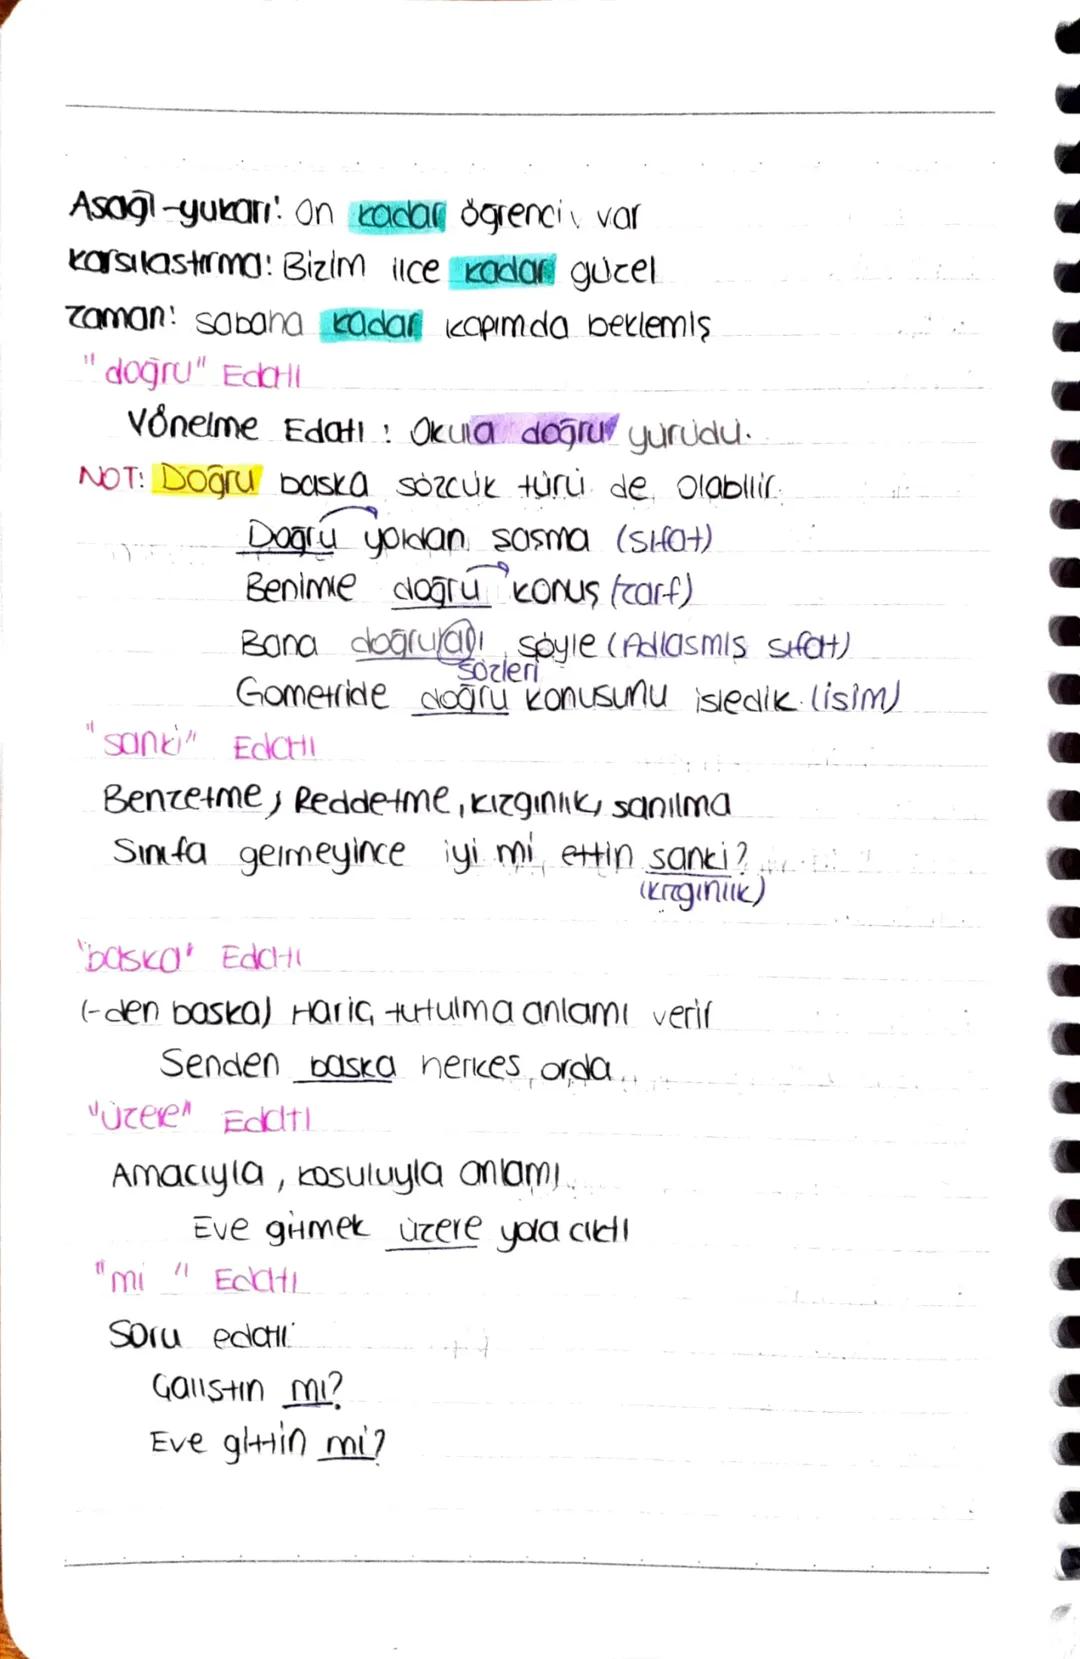 Asağı-yukarı: On kadar öğrenci var
karsılastırma: Bizim ilce kadar güzel
zaman: sabaha kadar kapımda beklemiş
"doğru" Edatı
Yönelme Edatı : Okula doğru yürüdü.
NOT: Doğru baska sözcük türü de olabilir.
Doğru yoldan sasma (sıfat)
Benimle doğru konuş (zarf)
Bana doğruları söyle (Adlasmıs sıfat)
sözleri
Gometride doğru konusunu isledik (isim)
"sanki" Edatı
Benzetme, Reddetme, kızgınlık, sanılma
Sınıfa gelmeyince iyi mi ettin sanki?
(kızgınlık)
"baska" Edatı
(-den baska) Hariç tutulma anlamı verir
Senden baska herkes orda
"üzere" Edatı
Amacıyla, kosuluyla anlamı
Eve gitmek üzere yola cıktı
"mi" Edatı
Soru edatı
Çalıstın mı?
Eve gittin mi?